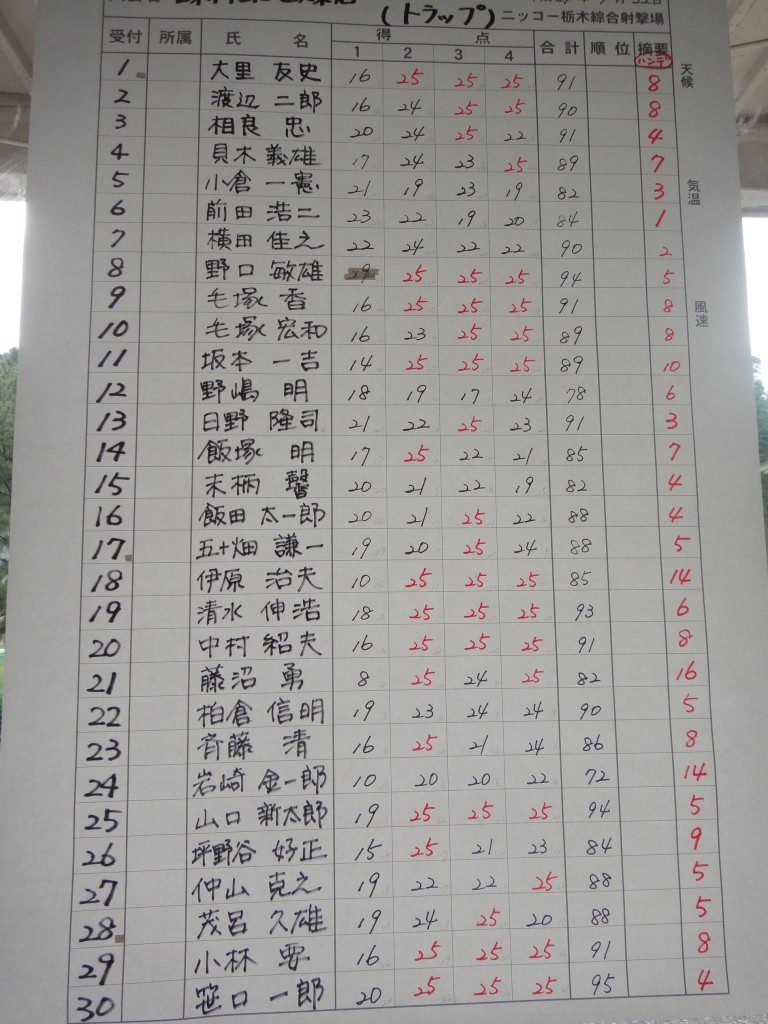 (トラップ) ニッコー栃木綜合射撃場
受付 所属 氏 名 得 点 合計 順位 摘要
1 2 3 4 ハンデ
1 大里 友史 16 25 25 25 91 8
2 渡辺 二郎 16 24 25 25 90 8
3 相良 忠 20 24 25 22 91 4
4 貝木 義雄 17 24 23 25 89 7
5 小倉 一憲 21 19 23 19 82 3
6 前田 浩二 23 22 19 20 84 1
7 横田 佳之 22 24 22 22 90 2
8 野口 敏雄 19 25 25 25 94 5
9 毛塚 香 16 25 25 25 91 8
10 毛塚 宏和 16 23 25 25 89 8
11 坂本 一吉 14 25 25 25 89 10
12 野嶋 明 18 19 17 24 78 6
13 日野 隆司 21 22 25 23 91 3
14 飯塚 明 17 25 22 21 85 7
15 末柄 馨 20 21 22 19 82 4
16 飯田 太一郎 20 21 25 22 88 4
17 五十畑 謙一 19 20 25 24 88 5
18 伊原 治夫 10 25 25 25 85 14
19 清水 伸浩 18 25 25 25 93 6
20 中村 紹夫 16 25 25 25 91 8
21 藤沼 勇 8 25 24 25 82 16
22 柏倉 信明 19 23 24 24 90 5
23 斉藤 清 16 25 21 24 86 8
24 岩崎 金一郎 10 20 20 22 72 14
25 山口 新太郎 19 25 25 25 94 5
26 坪野谷 好正 15 25 21 23 84 9
27 仲山 克之 19 22 22 25 88 5
28 茂呂 久雄 19 24 25 20 88 5
29 小林 要 16 25 25 25 91 8
30 笹口 一郎 20 25 25 25 95 4
天候
気温
風速